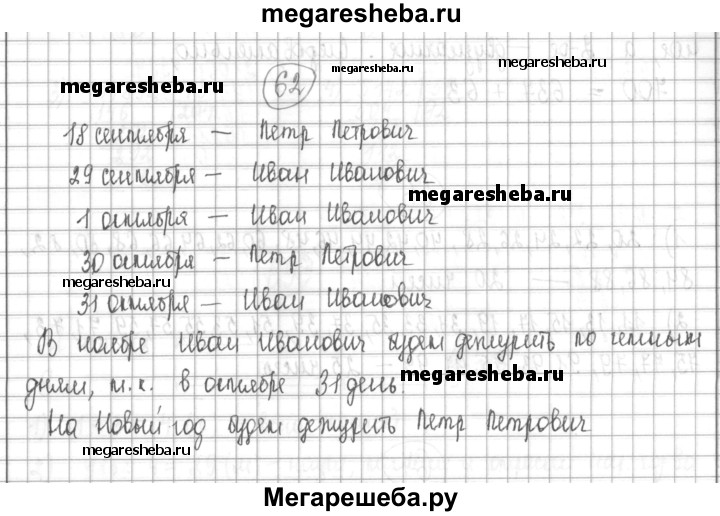 megaresheba.ru
62
megaresheba.ru
megaresheba.ru
megaresheba.ru
700 = 637 + 63
18 сентября — Петр Петрович
29 сентября — Иван Иванович
megaresheba.ru
1 октября — Иван Иванович
30 октября — Петр Петрович
megaresheba.ru
31 октября — Иван Иванович
В ноябре Иван Иванович будет дежурить по четным
дням, т.к. в октябре 31 день.
megaresheba.ru
На Новый год будет дежурить Петр Петрович
megaresheba.ru
Мегарешеба.ру